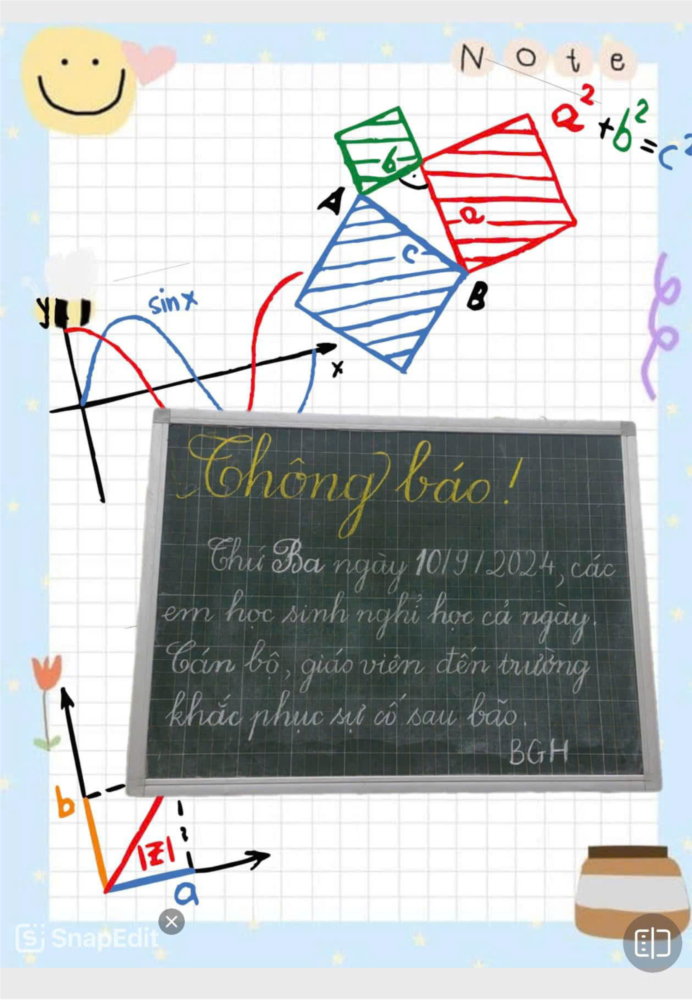 Note
a² + b² = c²
b
a
A
c
B
y
sin x
x
Thông báo!
Thứ Ba ngày 10/9/2024, các
em học sinh nghỉ học cả ngày.
Cán bộ, giáo viên đến trường
khắc phục sự cố sau bão.
BGH
b
|Z|
a
SnapEdit